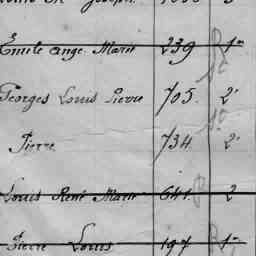 Emile Ange Marie 239 1er
Georges Louis Pierre 705. 2e
Pierre 734 2e
Louis René Marie 641. 2
Pierre Louis 197 1er